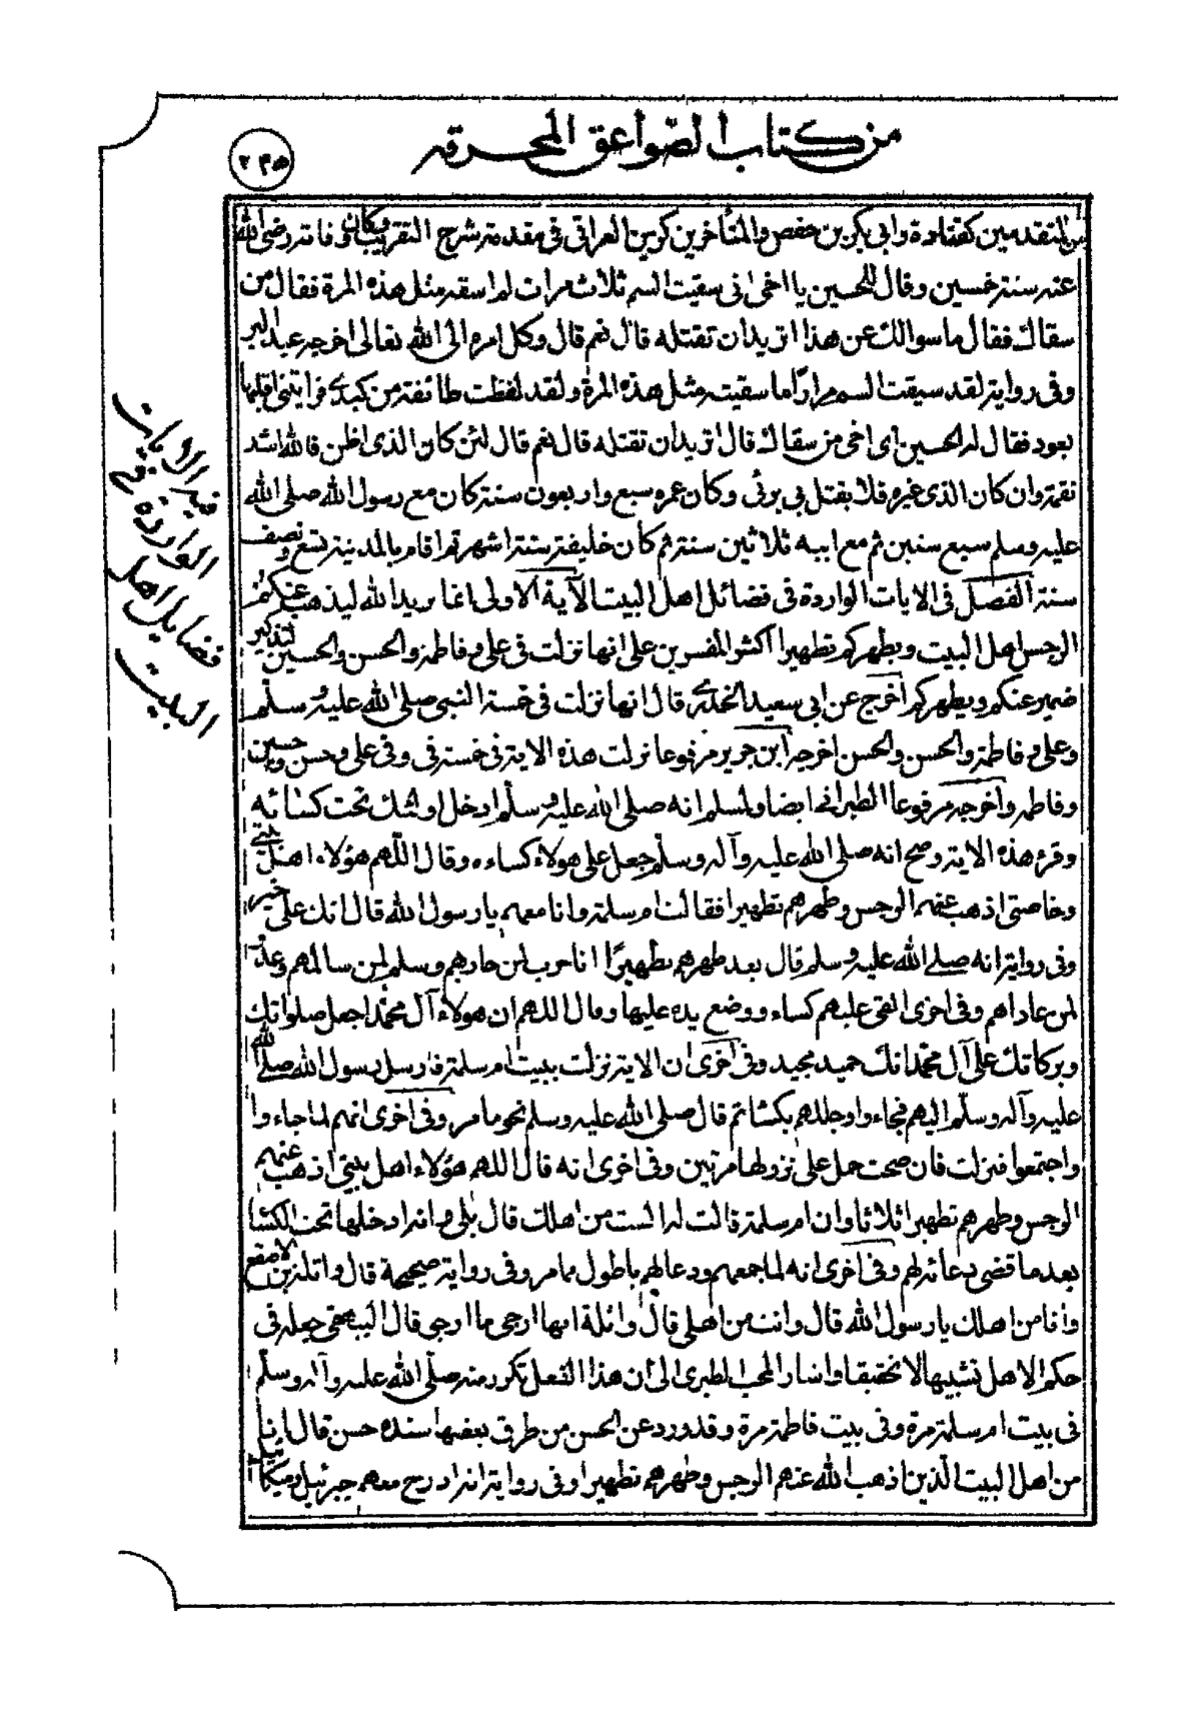 من كتاب الصواعق المحرقه
٢٣٥
من المتقدمين كقتادة وابي بكر بن حفص والمتأخرين كزين العراقي في مقدمة شرح التقريب وكان وفاته رضى الله
عنه سنة خمسين وقال للحسين يا اخى انى سقيت السم ثلاث مرات لم اسقه مثل هذه المرة فقال من
سقاك فقال ما سوالك عن هذا اتريد ان تقتله قال نعم قال وكل امره الى الله تعالى اخرجه عبد البر
وفى رواية لقد سيقت السم مرارًا ما سقيته مثل هذه المرة ولقد لفظت طائفة من كبدى فرايتنى اقلبها
بعود فقال له الحسين اى اخى من سقاك قال اتريد ان تقتله قال نعم قال لئن كان الذى اظن فالله اشد
نقمة وان كان الذى غيره فلا يقتل بى برئى وكان عمره سبع واربعون سنة كان مع رسول الله صلى الله
عليه وسلم سبع سنين ثم مع ابيه ثلاثين سنة ثم كان خليفة ستة اشهر ثم اقام بالمدينة تسع ونصف
سنة الفصل فى الايات الواردة فى فضائل اهل البيت الآية الاولى انما يريد الله ليذهب عنكم
الرجس اهل البيت ويطهركم تطهيرا اكثر المفسرين على انها نزلت فى على وفاطمة والحسن والحسين لتذكير
ضمير عنكم ويطهركم اخرج عن ابى سعيد الخدرى قال انها نزلت فى خمسة النبى صلى الله عليه وسلم
وعلى وفاطمة والحسن والحسن اخرجه ابن جرير مرفوعا نزلت هذه الاية فى خمسة فى وفى على وحسن وحسين
وفاطمه واخرجه مرفوعا الطبرانى ايضا ولمسلم انه صلى الله عليه وسلم ادخل اولئك تحت كسائه
وقرء هذه الاية وصح انه صلى الله عليه وآله وسلم جعل على هولاء كساءه وقال اللهم هؤلاء اهل بيتى
وخاصتى اذهب عنهم الرجس وطهرهم تطهيرا فقالت ام سلمة وانا معهم يا رسول الله قال انك على خير
وفى رواية انه صلى الله عليه وسلم قال بعد طهرهم تطهيرًا انا حرب لمن حاربهم وسلم لمن سالمهم وعدو
لمن عاداهم وفى اخرى القى عليهم كساء ووضع يده عليها وقال اللهم ان هولاء آل محمد اجعل صلواتك
وبركاتك على آل محمد انك حميد مجيد وفى اخرى ان الاية نزلت ببيت ام سلمة فارسل رسول الله صلى الله
عليه وآله وسلم اليهم فجاءوا وجللهم بكساء ثم قال صلى الله عليه وسلم نحو ما مر وفى اخرى انهم لما جاءوا
واجتمعوا فنزلت فان صحت حمل على نزولها مرتين وفى اخرى انه قال اللهم هؤلاء اهل بيتى اذهب عنهم
الرجس وطهرهم تطهيرا ثلاثا وان ام سلمة قالت له الست من اهلك قال بلى وانه ادخلها تحت الكسا
بعد ما قضى دعائه لهم وفى اخرى انه لما جمعهم ودعا لهم باطول مما مر وفى رواية صحيحة قال واثلة بن الاصقع
وانا من اهلك يا رسول الله قال وانت من اهلى قال واثلة انها ارجى ما ارجى قال البيهقى جعله فى
حكم الاهل تشبيها لا تحقيقا واشار المحب الطبرى الى ان هذا الفعل تكرر منه صلى الله عليه وآله وسلم
فى بيت ام سلمة مرة وفى بيت فاطمة مرة وقد ورد عن الحسن من طرق بعضها سنده حسن قال انا
من اهل البيت الذين اذهب الله عنهم الرجس وطهرهم تطهيرا وفى رواية انه ادرج معهم جبرئيل وميكائيل
فيه الايات
الواردة فى
فضايل اهل
البيت